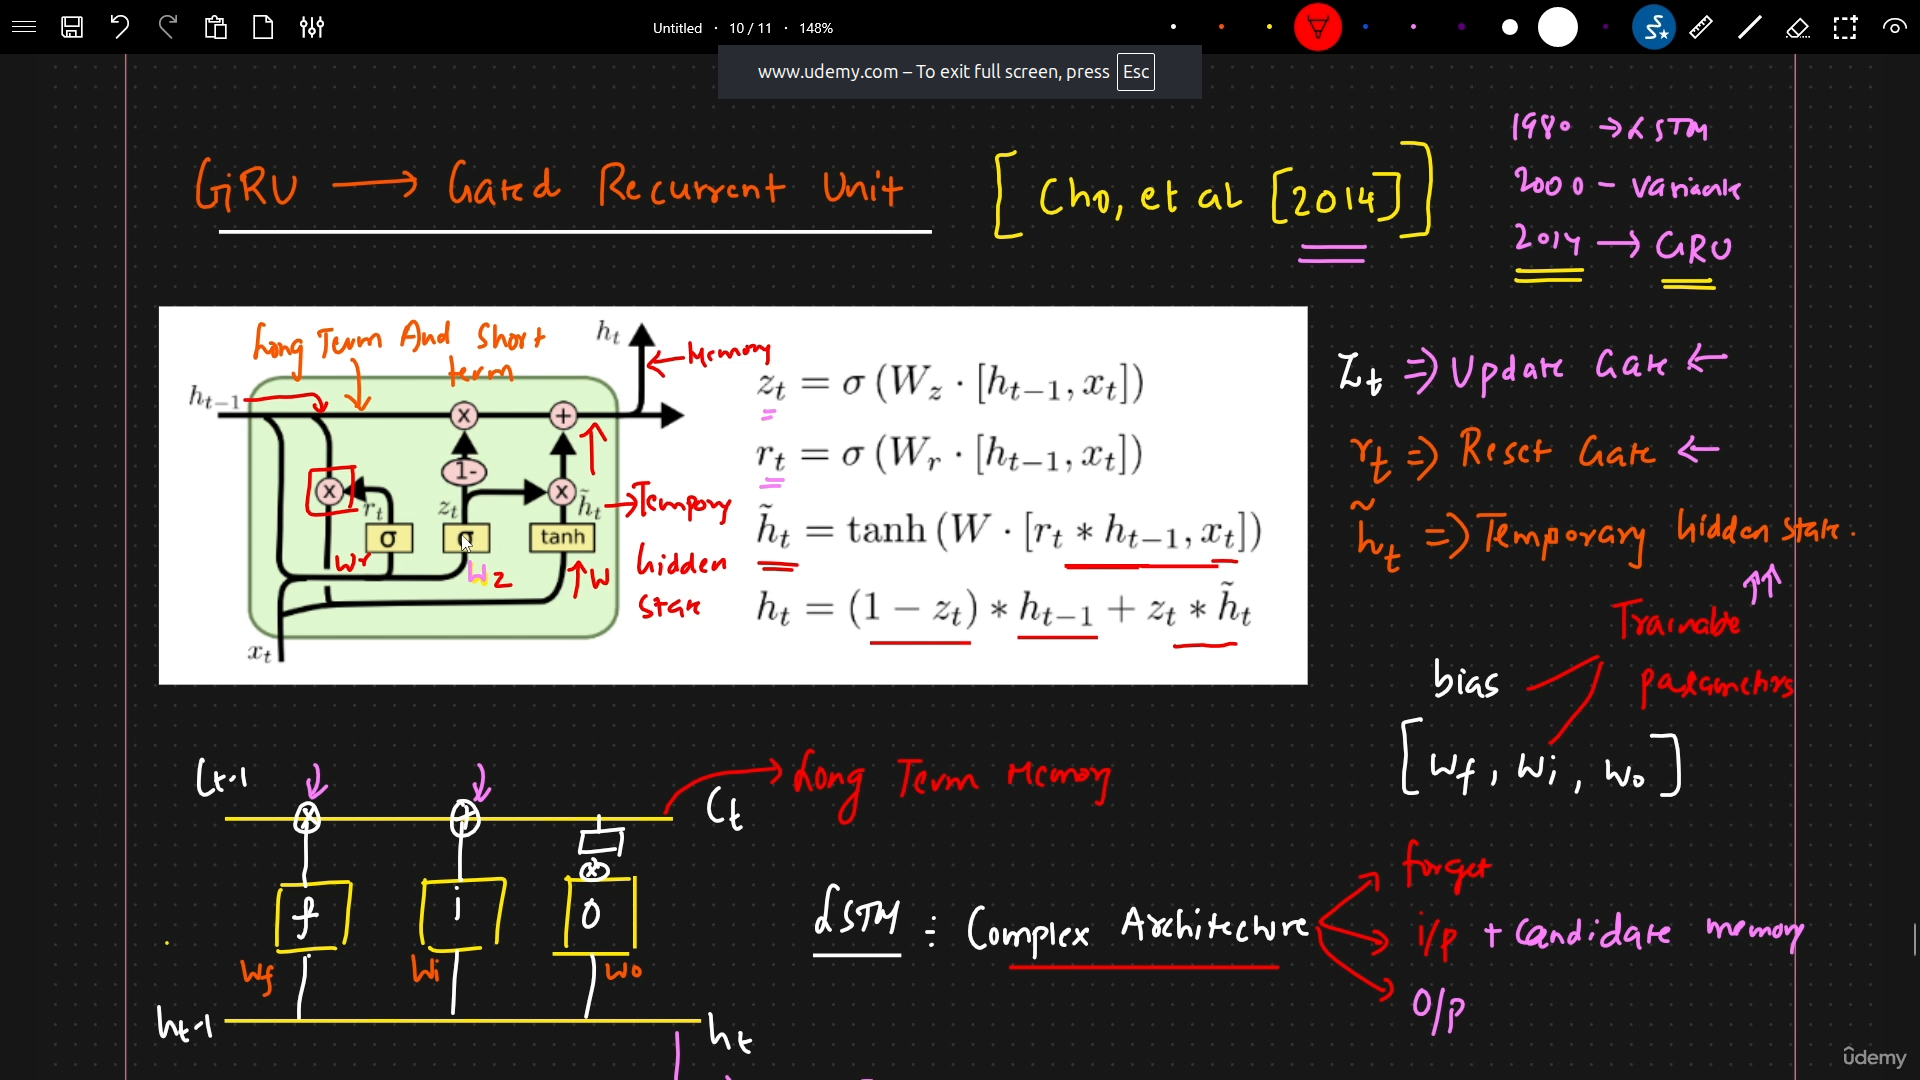 Untitled · 10 / 11 · 148%
www.udemy.com – To exit full screen, press Esc
GRU → Gated Recurrent Unit
[Cho, et al [2014]]
1980 → LSTM
2000 – Variants
2014 → GRU
Long Term And Short
term
h_t
← Memory
h_{t-1}
x
+
1-
x
x
r_t
z_t
h̃_t
→ Tempory
hidden
state
σ
σ
tanh
Wr
Wz
W
x_t
z_t = σ (W_z · [h_{t-1}, x_t])
r_t = σ (W_r · [h_{t-1}, x_t])
h̃_t = tanh (W · [r_t * h_{t-1}, x_t])
h_t = (1 − z_t) * h_{t-1} + z_t * h̃_t
Z_t ⇒ Update Gate ←
r_t ⇒ Reset Gate ←
h̃_t ⇒ Temporary hidden state.
Trainable
parameters
bias
[Wf, Wi, Wo]
C_{t-1}
x
+
x
C_t
Long Term Memory
f
i
O
Wf
Wi
Wo
h_{t-1}
h_t
LSTM : Complex Architecture
forget
i/p + Candidate memory
O/p
ûdemy